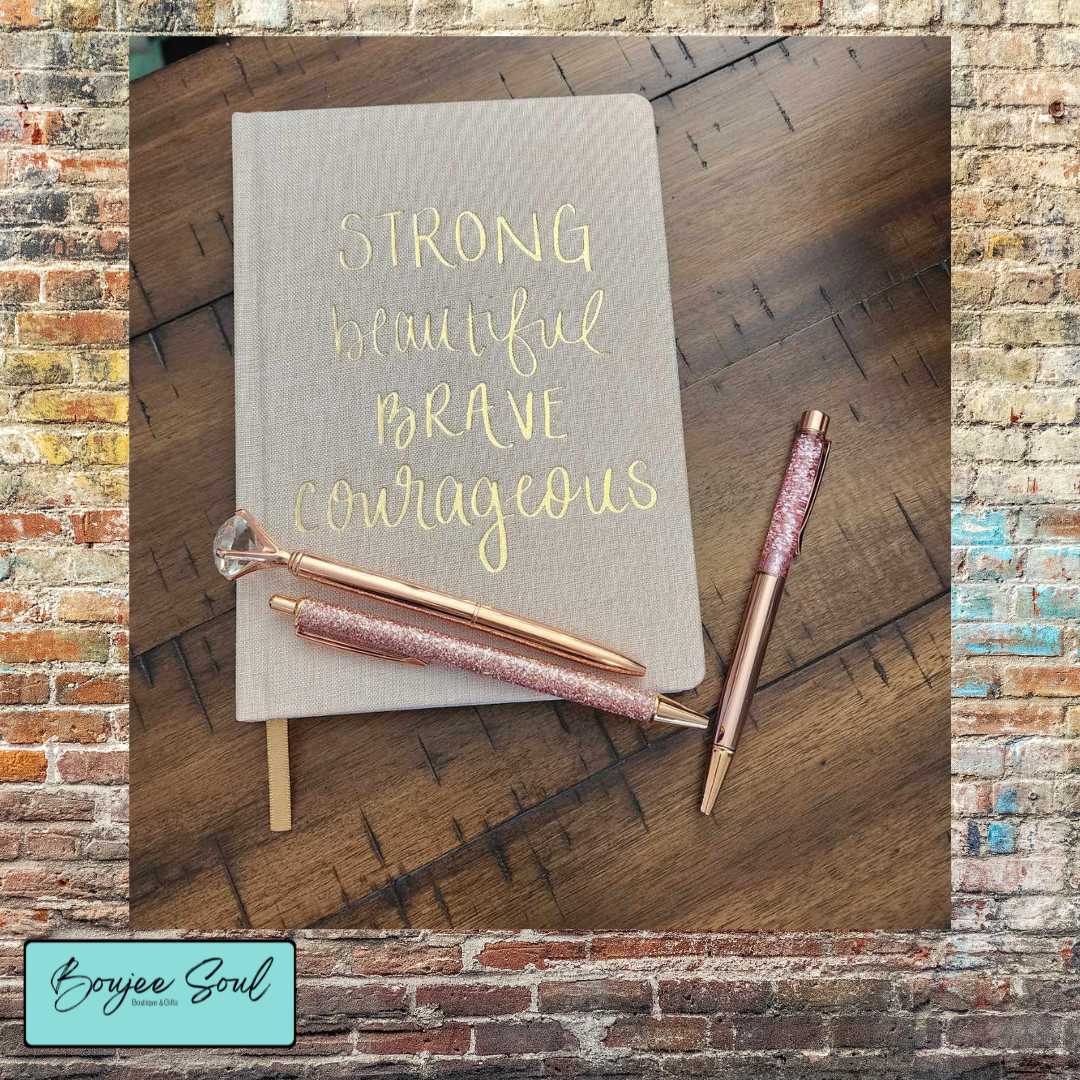 STRONG
beautiful
BRAVE
courageous
Boujee Soul
Boutique & Gifts